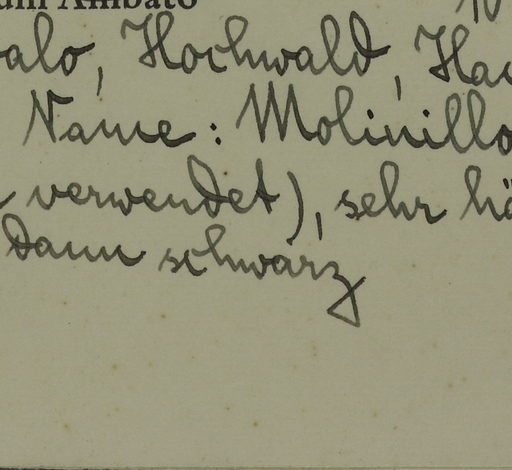 um Ambato
alo, Hochwald, Ha
Name: Molinillo
verwendet), sehr hä
dann schwarz